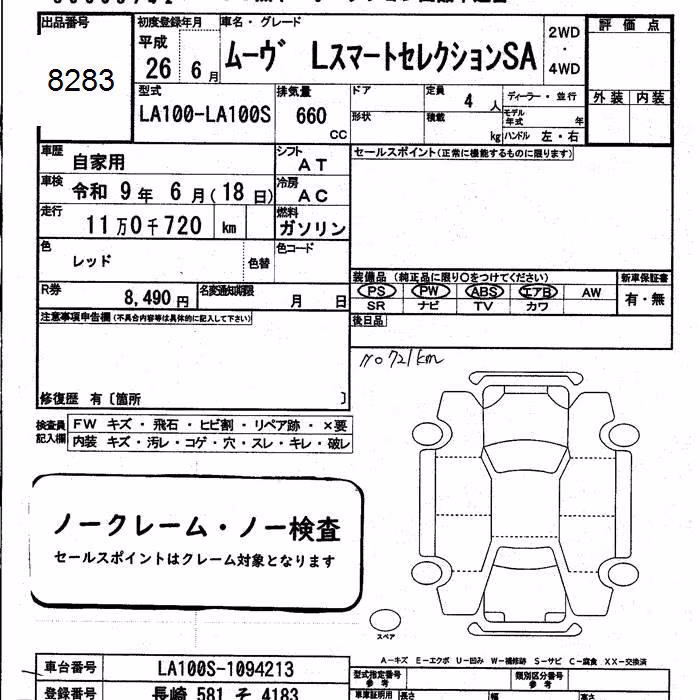 出品番号 初度登録年月 車名・グレード 2WD・4WD 評価点
8283 平成 26年 6月 ムーヴ LスマートセレクションSA
型式 排気量 ドア 定員 4人 ディーラー・並行 外装 内装
LA100-LA100S 660CC 形状 積載 kg モデル年式 年
ハンドル 左・右
車歴 自家用 シフト AT セールスポイント(正常に機能するものに限ります)
車検 令和 9年 6月(18日) 冷房 AC
走行 11万0千720 km 燃料 ガソリン
色 レッド 色替 色コード
装備品 (純正品に限り○をつけてください) 新車保証書
R券 8,490円 名変通知期限 月 日 PS PW ABS エアB AW 有・無
SR ナビ TV カワ
注意事項申告欄(不具合内容等は具体的に記入して下さい) 後日品
110721km
修復歴 有〔箇所 〕
検査員記入欄 FW キズ・飛石・ヒビ割・リペア跡・×要
内装 キズ・汚レ・コゲ・穴・スレ・キレ・破レ
ノークレーム・ノー検査
セールスポイントはクレーム対象となります
スペア
A-キズ E-エクボ U-凹み W-補修跡 S-サビ C-腐食 XX-交換済
車台番号 LA100S-1094213 型式指定番号 参考 類別区分番号 参考
登録番号 長崎 581 そ 4183 車庫証明用 長さ 幅 高さ